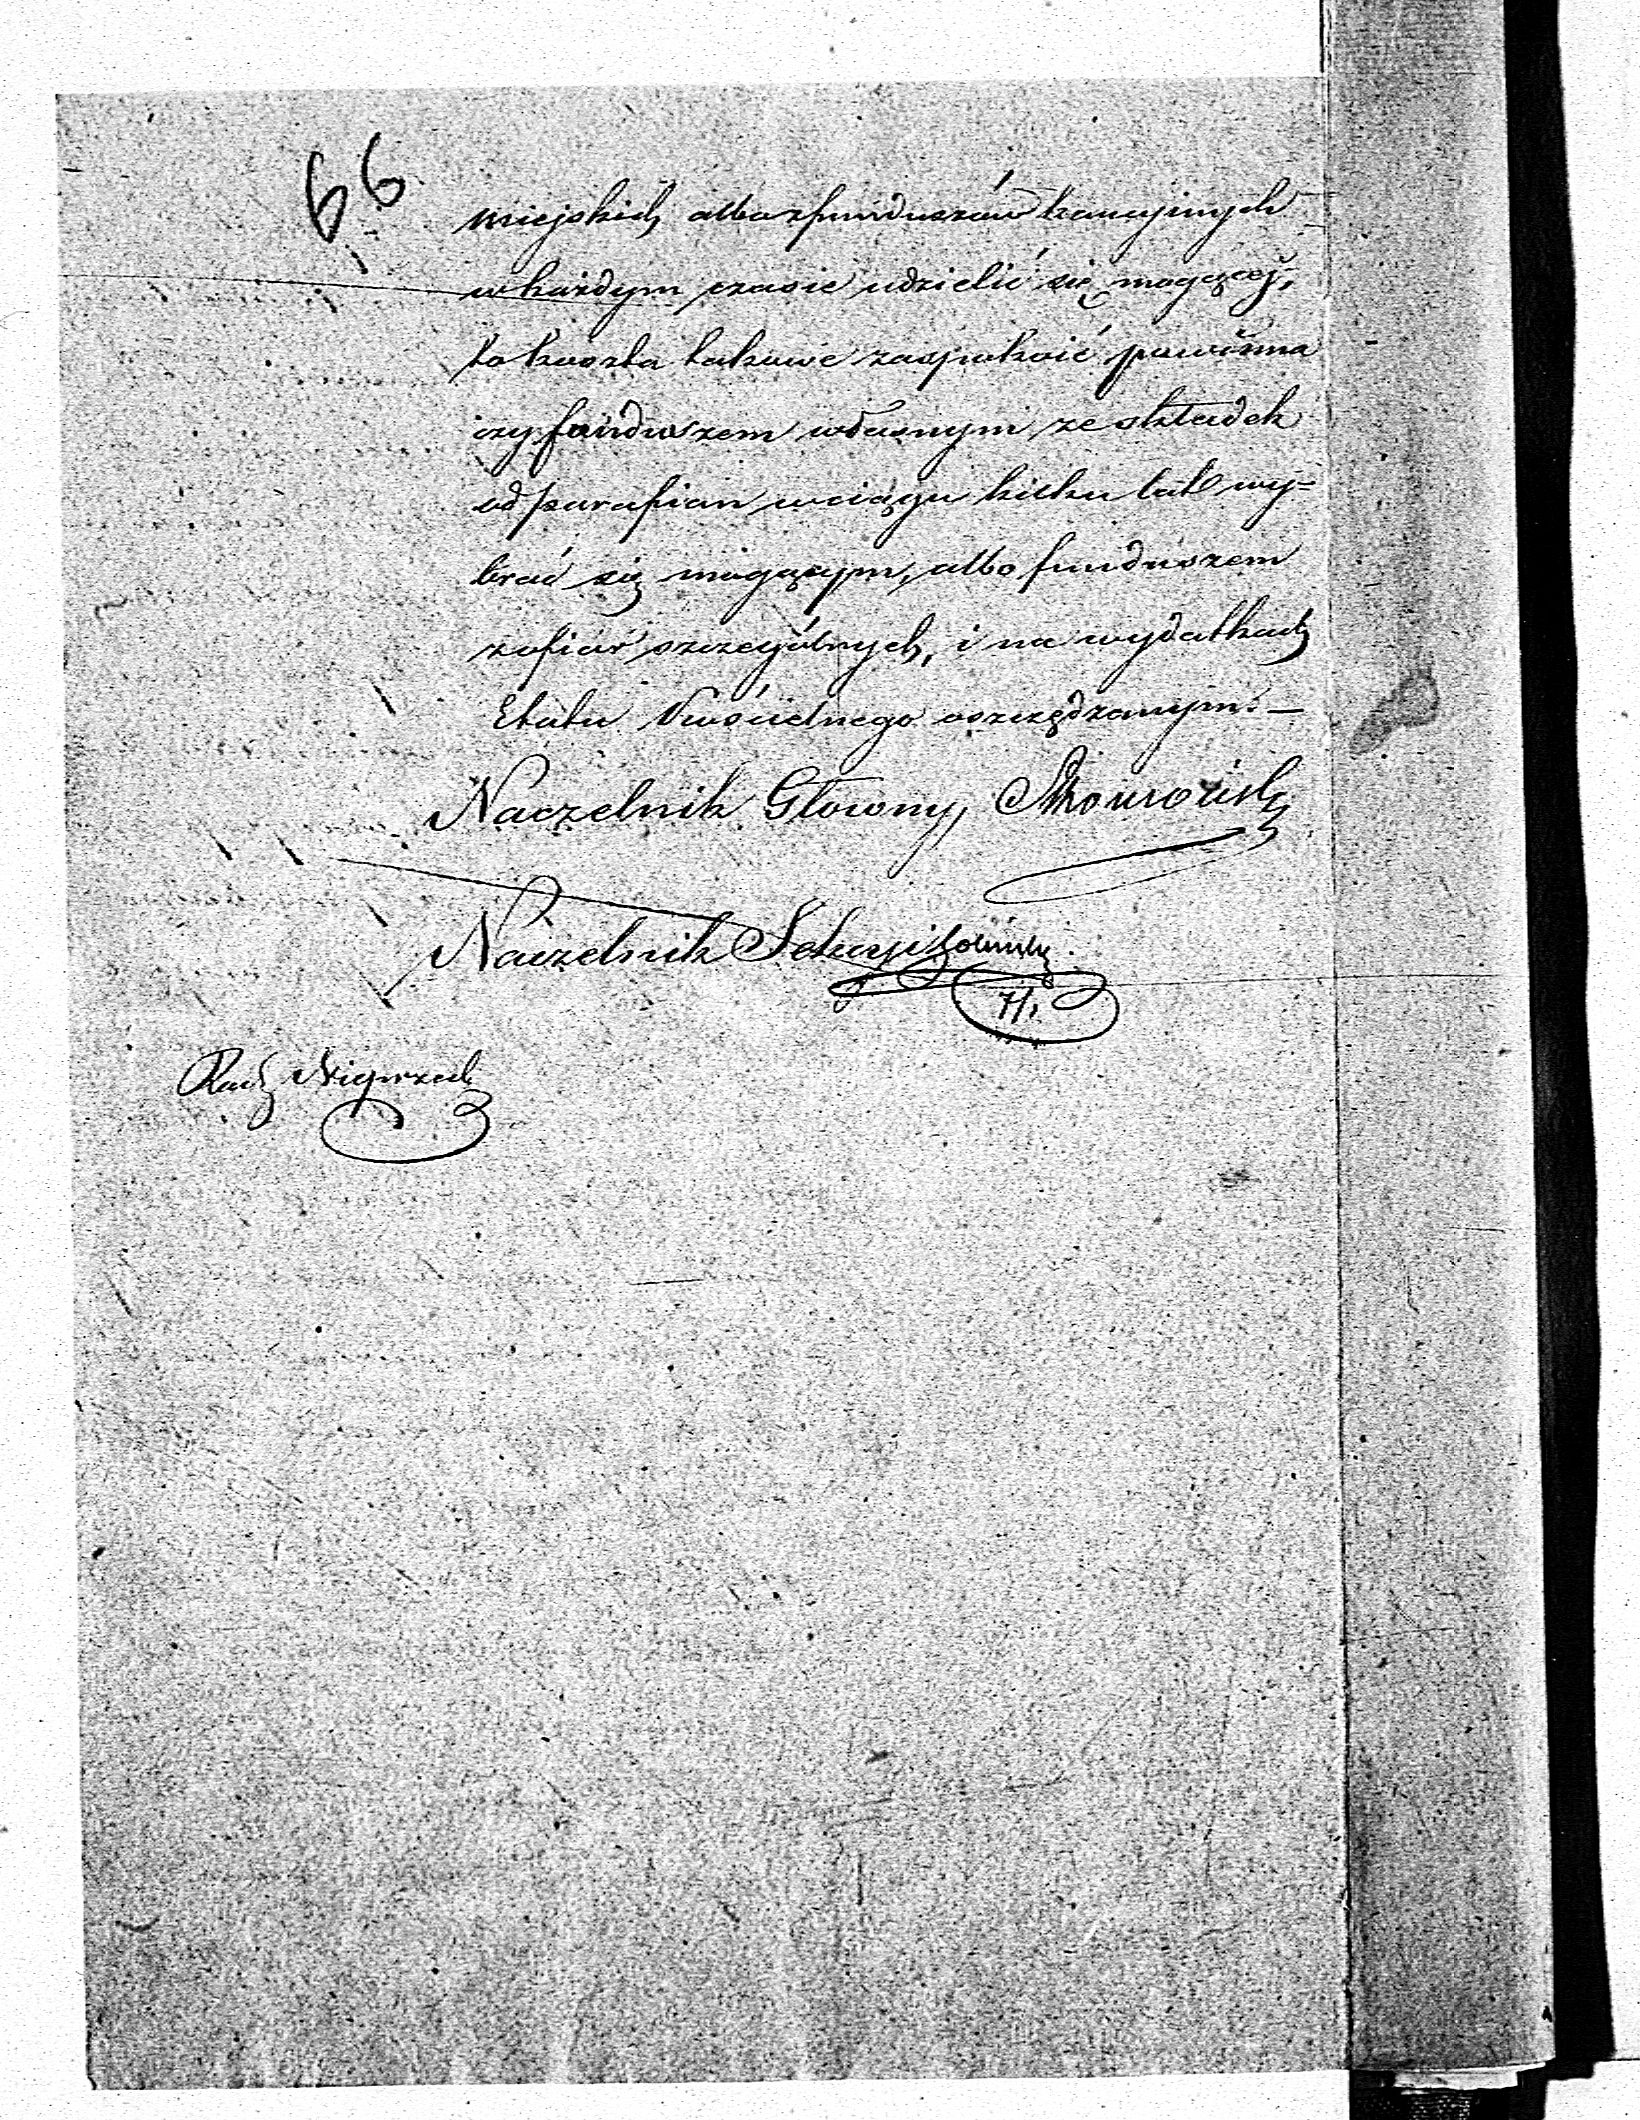 66
miejskich albo z funduszów kaucyjnych
w każdym czasie udzielić się mogącej,
to koszta takowe zaspokoić powinna
czy funduszem własnym ze składek
od parafian w ciągu kilku lat wy-
brać się mogącym, albo funduszem
z ofiar szczególnych, i na wydatkach
Etatu Kościelnego oszczędzanym. —
Naczelnik Główny
Naczelnik Sekcyi